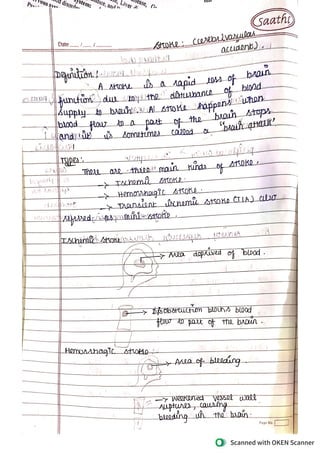 Saathi
Date ..../..../....
Stroke: (cerebrovascular
accident).
Definition:
A stroke is a rapid loss of brain
function due to the disturbance of blood
supply to brain. A stroke happens when
blood flow to a part of the brain stops
and it is sometimes called a "brain attack"
Types:
There are three main kinds of stroke.
→ Ischemic stroke.
→ Hemorrhagic stroke.
→ Transient ischemic stroke (TIA) also
referred as mini-stroke.
Ischemic stroke
→ Area deprived of blood.
→ Obstruction blocks blood
flow to part of the brain.
Hemorrhagic stroke
→ Area of bleeding
→ Weakened vessel wall
ruptures, causing
bleeding in the brain.
Page No.
Scanned with OKEN Scanner